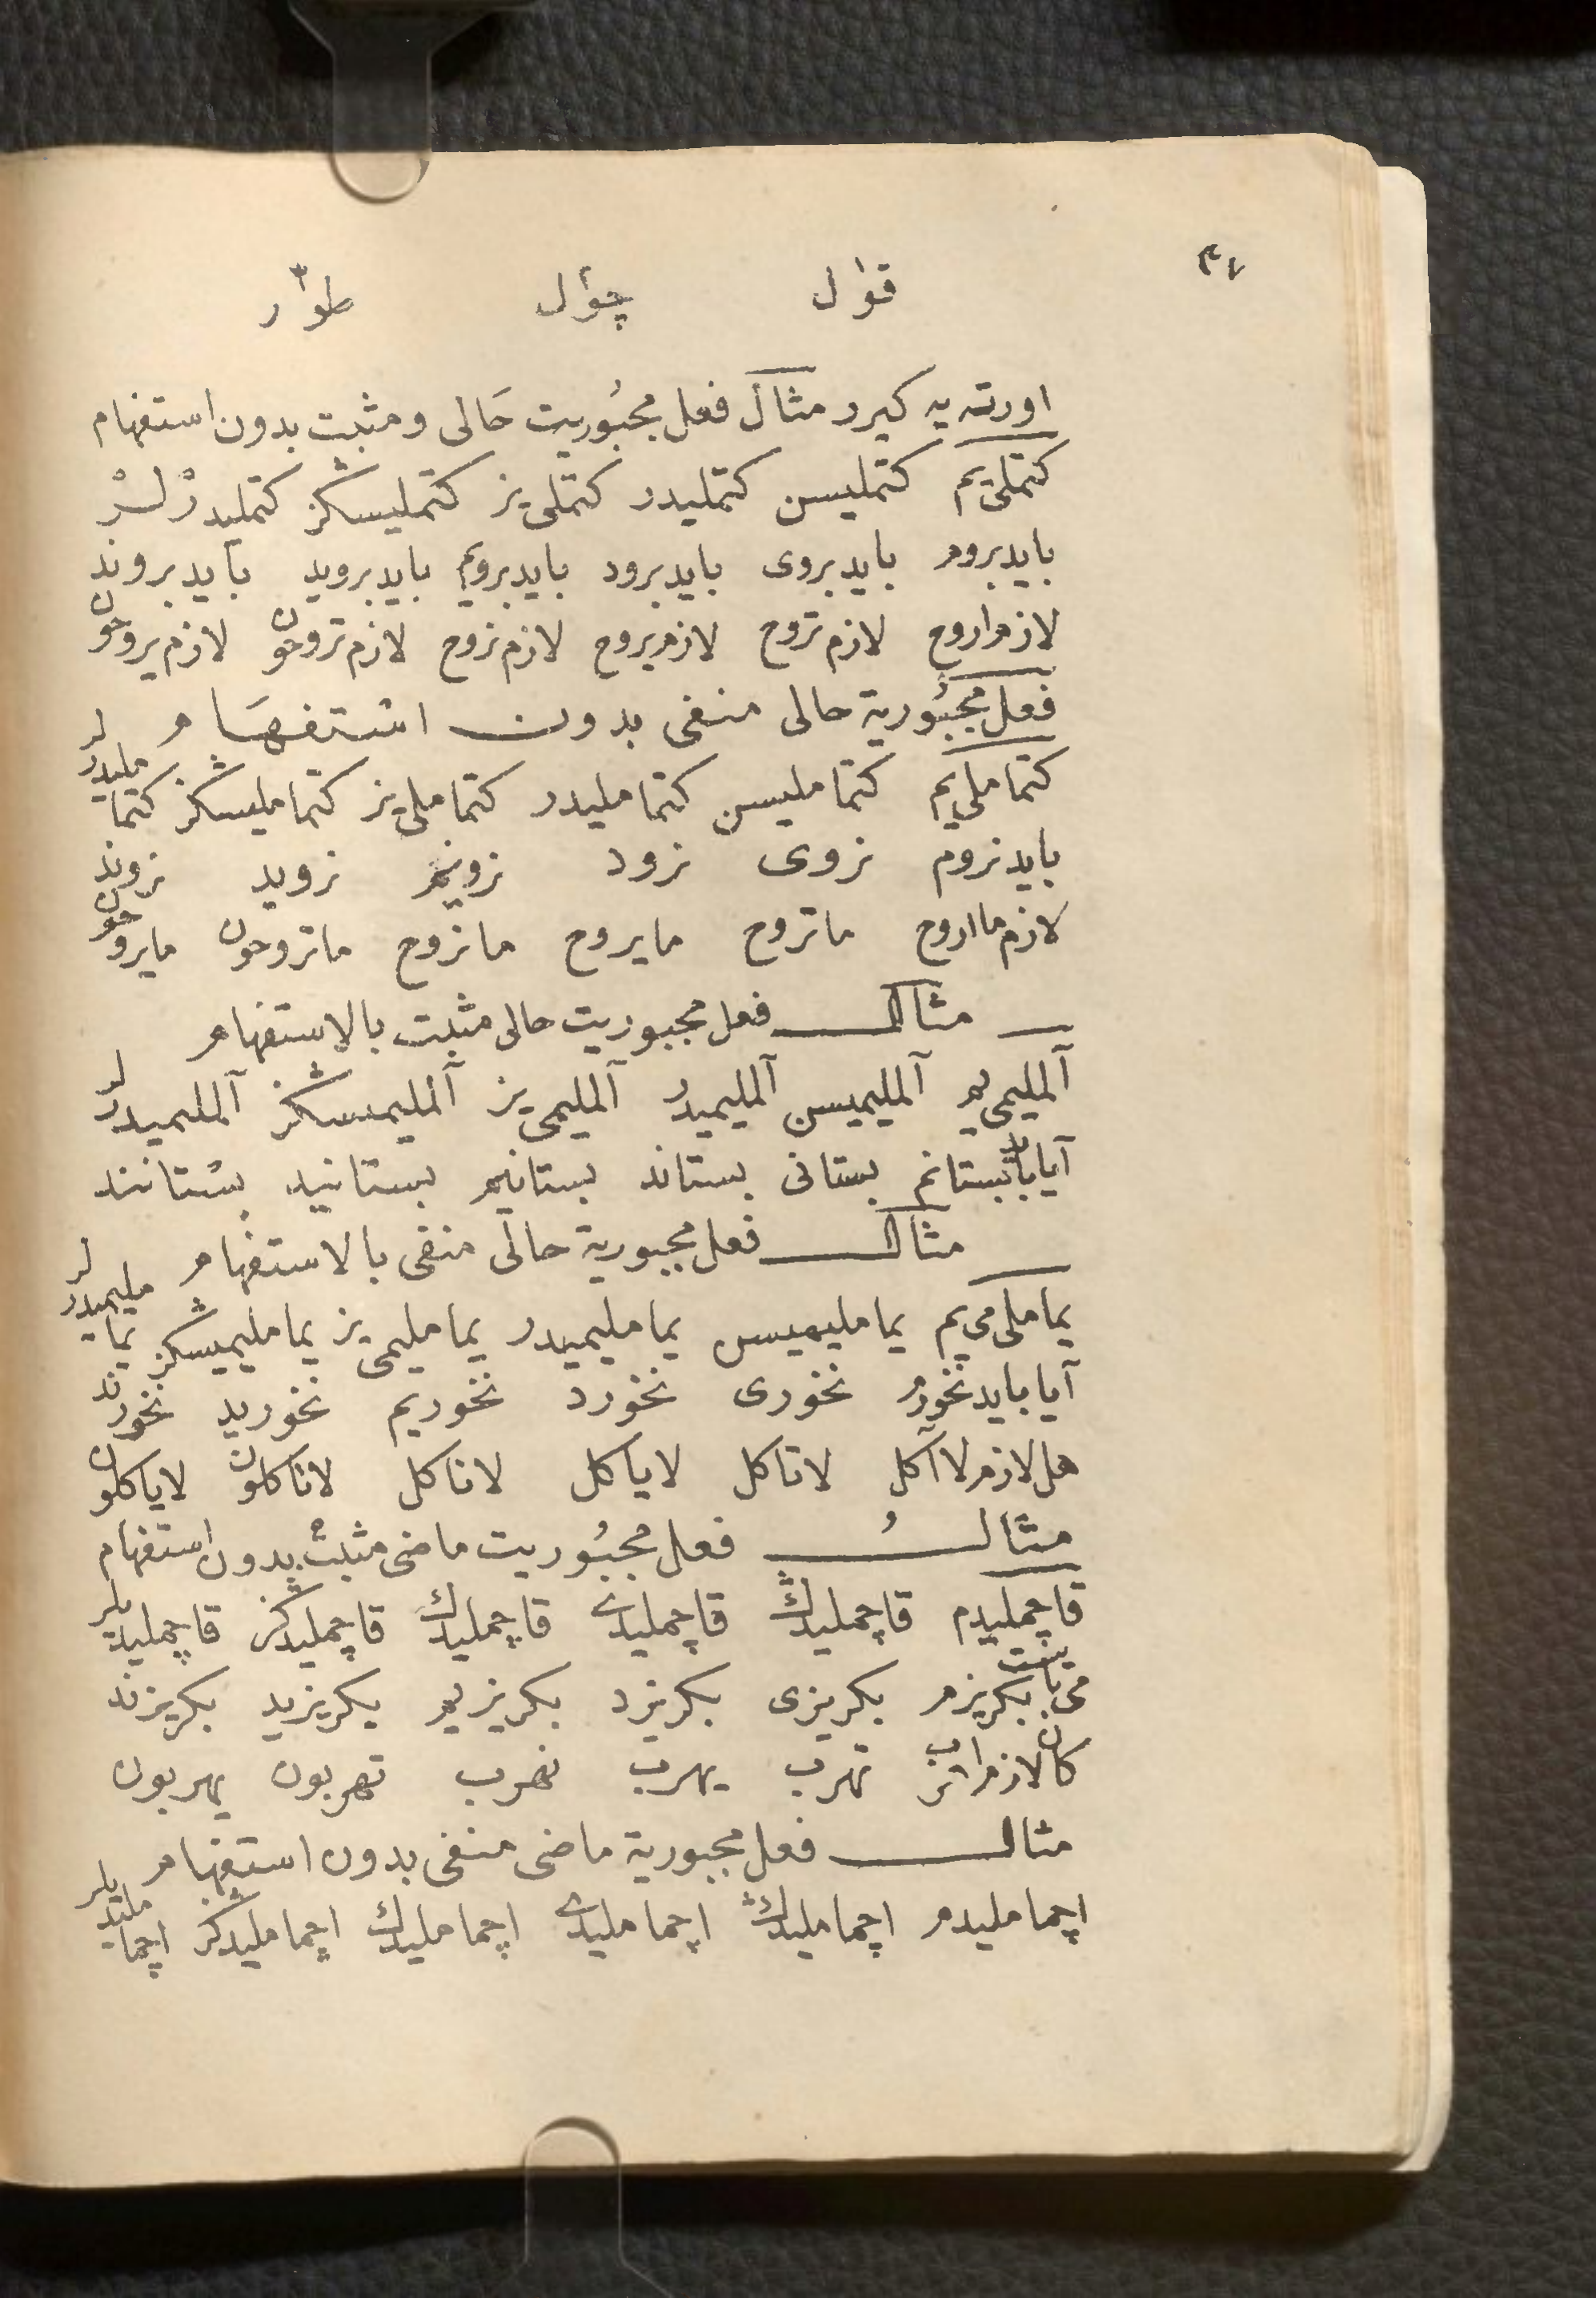 ٣٧
قوٰل چوٰل طوٰر
اورته يه كيرر مثال فعل مجبُوريت حَالى ومثبت بدون استفهام
كتملى‌يم كتمليسن كتمليدر كتملى‌يز كتمليسڭز كتمليدرْلرْ
بايدبروم بايدبروى بايدبرود بايدبرويم بايدبرويد بايدبروند
لازم‌اروح لازم‌تروح لازم‌يروح لازم‌نروح لازم‌تروحون لازم‌يروحون
فعل مجبُورية حالى منفى بدون استفهَام
كتماملى‌يم كتمامليسن كتمامليدر كتماملى‌يز كتمامليسڭز كتمامليدرلر
بايدنروم نروى نرود نرويم نرويد نروند
لازم‌مااروح ماتروح مايروح مانروح ماتروحون مايروحون
مثال فعل مجبوريت حالى مثبت بالاستفهام
آلمليمى‌يم آلمليميسن آلمليميدر آلمليمى‌يز آلمليميسڭز آلمليميدرلر
آيابايدبستانم بستانى بستاند بستانيم بستانيد بستانند
مثال فعل مجبورية حالى منفى بالاستفهام
يماملى‌مى‌يم يمامليميسن يمامليميدر يمامليمى‌يز يمامليميسڭز يمامليميدرلر
آيابايدنخورم نخورى نخورد نخوريم نخوريد نخورند
هل‌لازم‌لاآكل لاتاكل لاياكل لاناكل لاتاكلون لاياكلون
مثالُ فعل مجبُوريت ماضى مثبت بدون استفهام
قاچمليدم قاچمليدڭ قاچمليدى قاچمليدك قاچمليدڭز قاچمليديلر
مى‌بايست بكريزم بكريزى بكريزد بكريزيم بكريزيد بكريزند
كان‌لازم‌اهرب تهرب يهرب نهرب تهربون يهربون
مثال فعل مجبورية ماضى منفى بدون استفهام
اچماملیدم اچمامليدڭ اچمامليدى اچمامليدك اچمامليدڭز اچمامليديلر